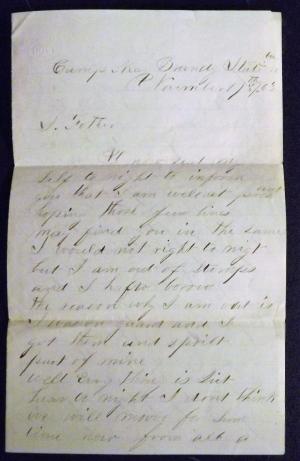 Camp Near Brandy Stat
November 17th /63
D. Father
self to night to inform
you that I am well at present
hoping those few lines
may find you in the same
I would not right to nigt
but I am out of stamps
and I hafto borow
the reason why I am out is
I was on guard and I
got them and spoilt
part of mine
well Every thing is
hear to night I dont think
we will moove for som
time now from all a